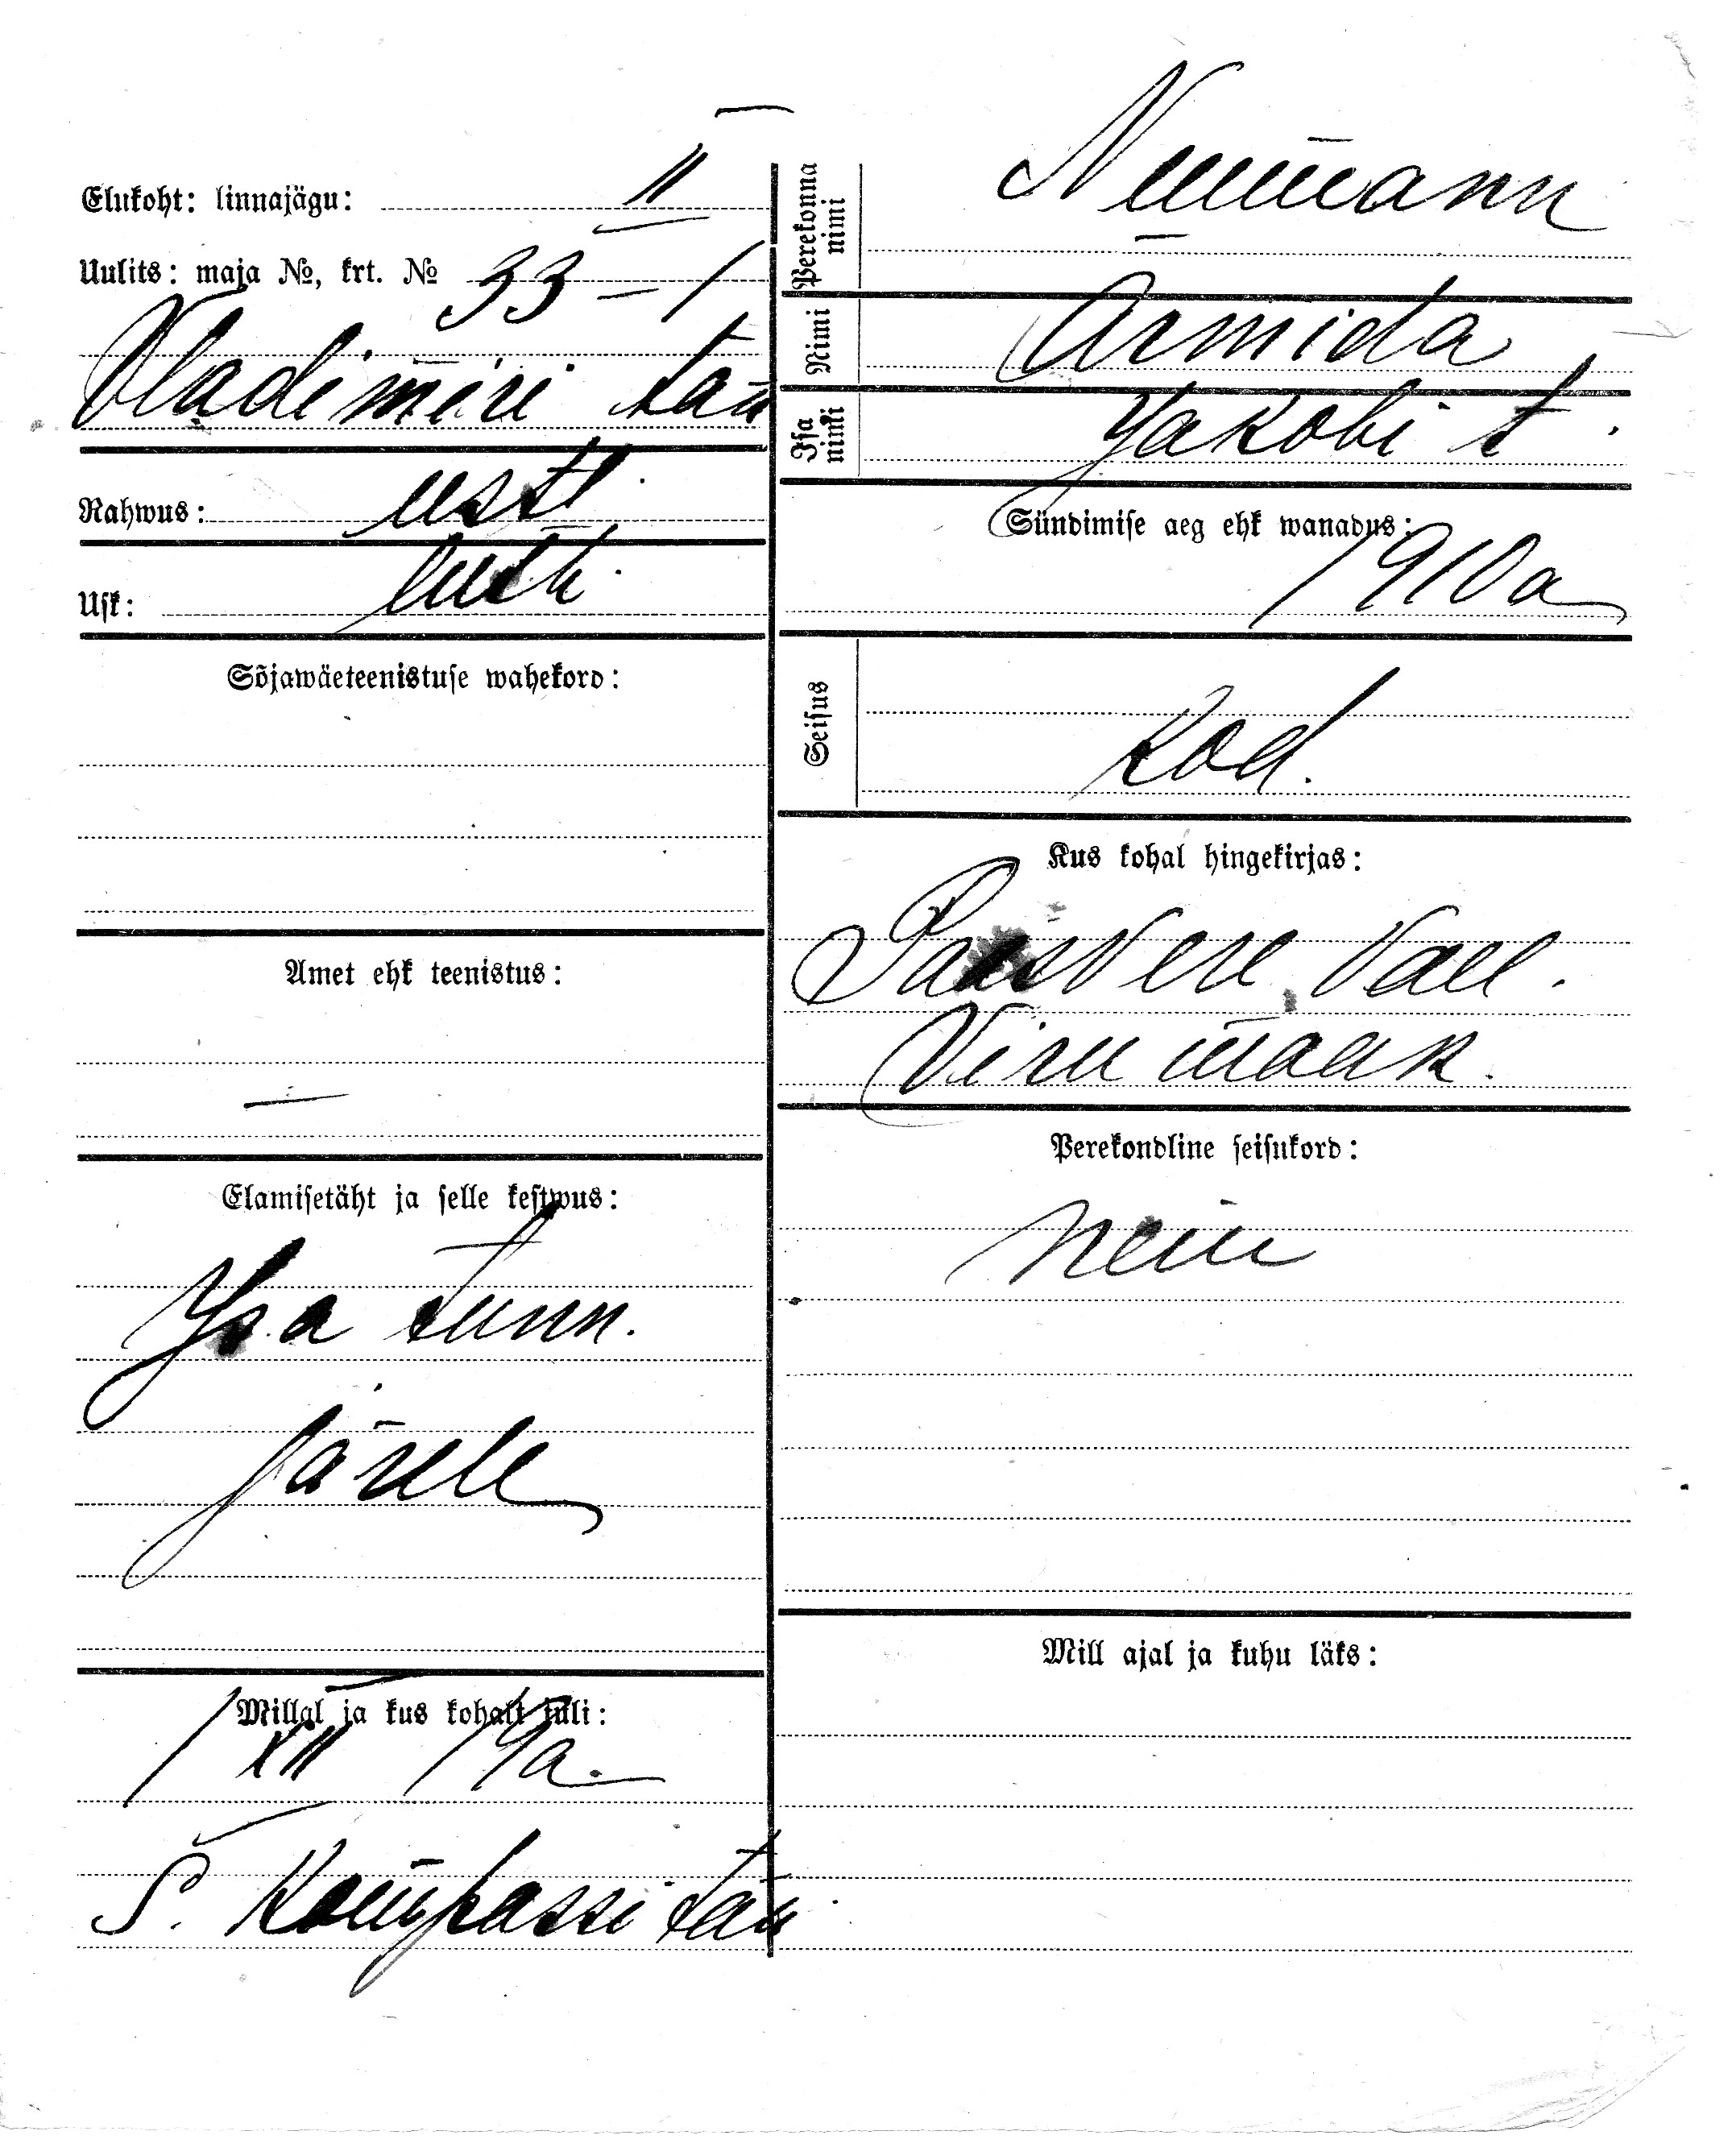 Elukoht: linnajägu: II
Uulits: maja №, krt. № 33 – 1
Vladimiri tän
Rahwus: eestl.
Usk: luth.
Sõjawäeteenistuse wahekord:
Amet ehk teenistus:
—
Elamisetäht ja selle kestwus:
Isa tunn.
järele
Millal ja kus kohalt tuli:
1 XII 19a.
S. Kompassi tän.
Perekonna nimi Neumann
Nimi Armida
Isa nimi Jakobi t.
Sündimise aeg ehk wanadus:
1910a
Seisus kod.
Kus kohal hingekirjas:
Paasvere vall.
Viru maak.
Perekondline seisukord:
neiu
Mill ajal ja kuhu läks: